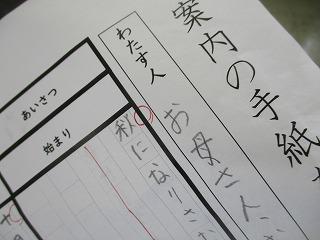 案内の手紙
わたす人
お母さん
あいさつ
始まり
秋になりさ